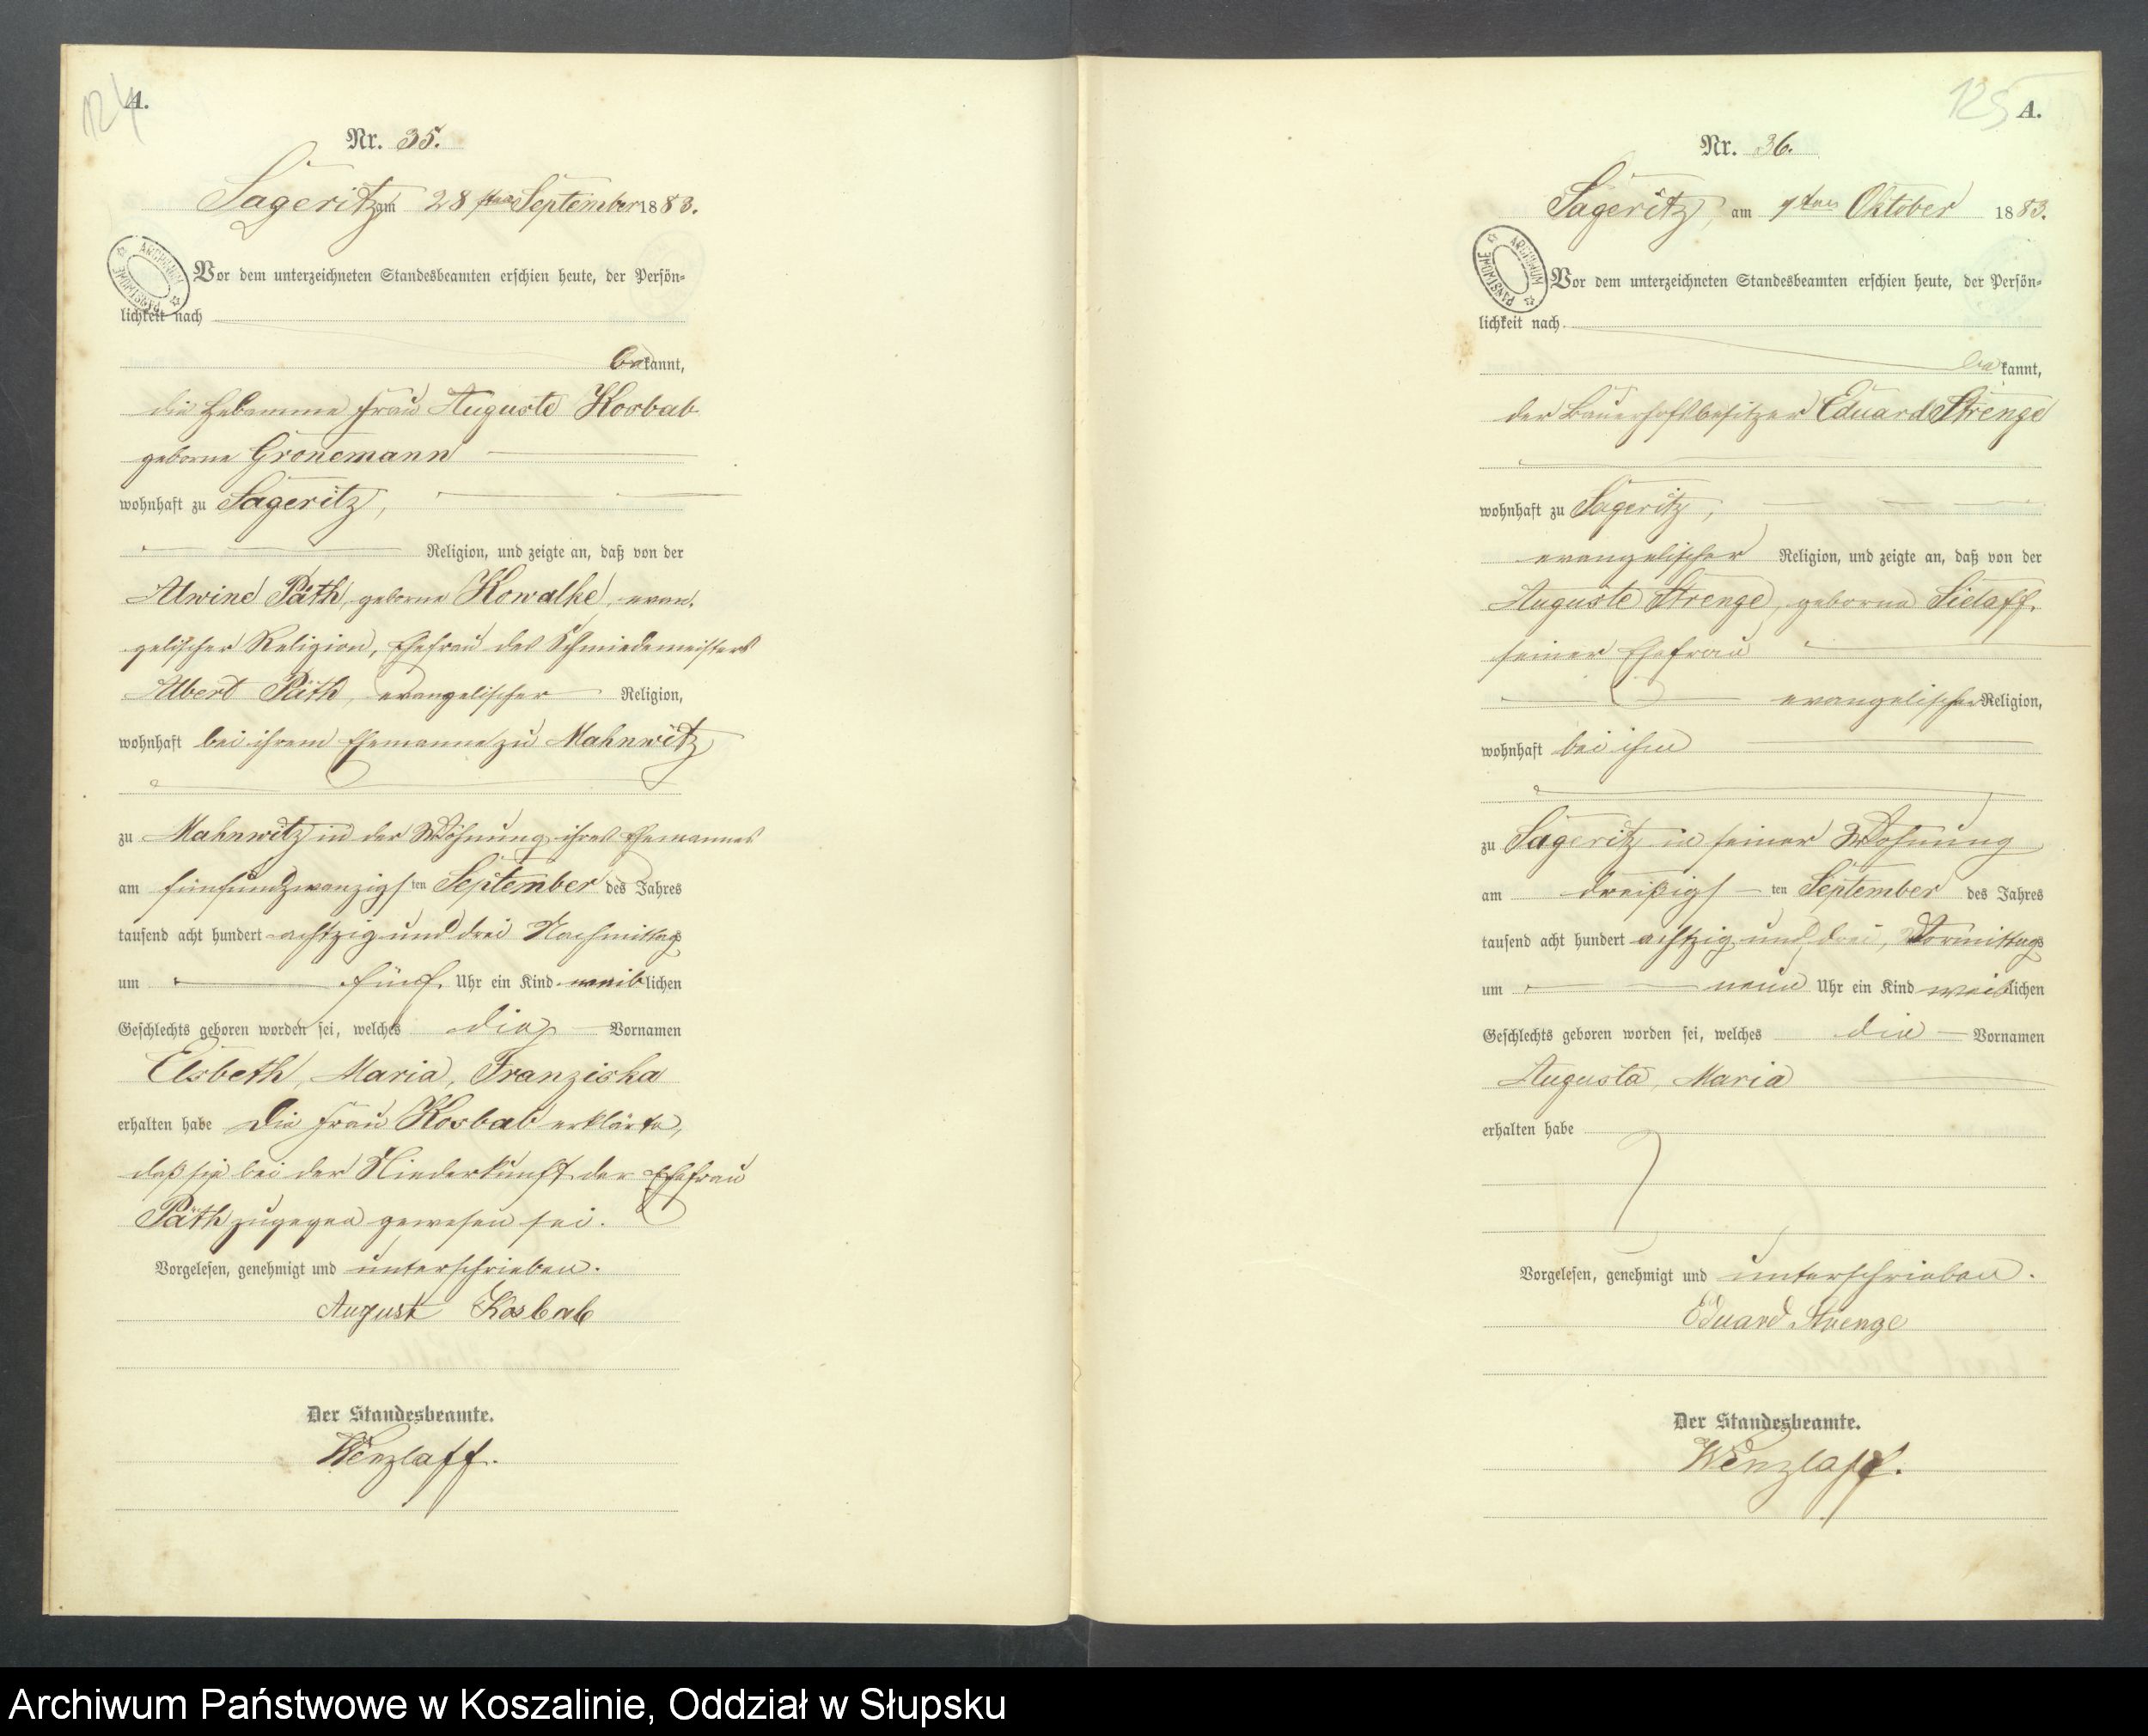 124
A.
Nr. 35.
Sageritz am 28sten September 1883.
ARCHIWUM PAŃSTWOWE
Vor dem unterzeichneten Standesbeamten erschien heute, der Persön-
lichkeit nach
bekannt,
die Hebamme Frau Auguste Kosbab
geborne Gronemann
wohnhaft zu Sageritz,
Religion, und zeigte an, daß von der
Alwine Päth, geborne Kowalke, evan-
gelischer Religion, Ehefrau des Schmiedemeisters
Albert Päth, evangelischer Religion,
wohnhaft bei ihrem Ehemanne zu Mahnwitz
zu Mahnwitz in der Wohnung ihres Ehemannes
am fünfundzwanzigsten September des Jahres
tausend acht hundert achtzig und drei Nachmittags
um fünf Uhr ein Kind weiblichen
Geschlechts geboren worden sei, welches die Vornamen
Elsbeth, Maria, Franziska
erhalten habe Die Frau Kosbab erklärte,
daß sie bei der Niederkunft der Ehefrau
Päth zugegen gewesen sei.
Vorgelesen, genehmigt und unterschrieben.
August Kosbab
Der Standesbeamte.
Wenzlaff.
125
A.
Nr. 36.
Sageritz, am ten Oktober 1883.
ARCHIWUM PAŃSTWOWE
Vor dem unterzeichneten Standesbeamten erschien heute, der Persön-
lichkeit nach
bekannt,
der Bauerhofsbesitzer Eduard Strenge
wohnhaft zu Sageritz,
evangelischer Religion, und zeigte an, daß von der
Auguste Strenge, geborne Sielaff,
seiner Ehefrau
evangelischer Religion,
wohnhaft bei ihm
zu Sageritz in seiner Wohnung
am dreißigsten September des Jahres
tausend acht hundert achtzig und drei, Vormittags
um neun Uhr ein Kind weiblichen
Geschlechts geboren worden sei, welches die Vornamen
Augusta, Maria
erhalten habe
Vorgelesen, genehmigt und unterschrieben.
Eduard Strenge
Der Standesbeamte.
Wenzlaff.
Archiwum Państwowe w Koszalinie, Oddział w Słupsku